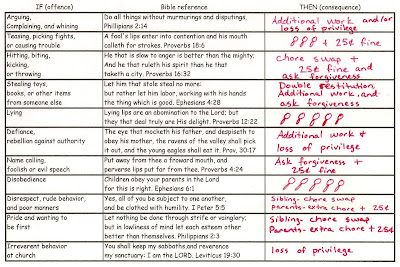 IF (offence)
Bible reference
THEN (consequence)
Arguing,
Complaining, and whining
Do all things without murmurings and disputings.
Phillipians 2:14
Additional work and/or
loss of privilege
Teasing, picking fights,
or causing trouble
A fool's lips enter into contention and his mouth
calleth for strokes. Proverbs 18:6
+ 25¢ fine
Hitting, biting,
kicking,
or throwing
He that is slow to anger is better than the mighty;
And he that ruleth his spirit than he that
taketh a city. Proverbs 16:32
Chore swap +
25¢ fine and
ask forgiveness
Stealing toys,
books, or other items
from someone else
Let him that stole steal no more:
but rather let him labor, working with his hands
the thing which is good. Ephesians 4:28
Double restitution
Additional Work, and
ask forgiveness
Lying
Lying lips are an abomination to the Lord; but
they that deal truly are His delight. Proverbs 12:22
Defiance,
rebellion against authority
The eye that mocketh his father, and despiseth to
obey his mother, the ravens of the valley shall pick
it out, and the young eagles shall eat it. Prov. 30:17
Additional work +
loss of privilege
Name calling,
foolish or evil speech
Put away from thee a froward mouth, and
perverse lips put far from thee. Proverbs 4:24
Ask forgiveness +
25¢ fine
Disobedience
Children obey your parents in the Lord
for this is right. Ephesians 6:1
Disrespect, rude behavior,
and poor manners
Yes, all of you be subject to one another,
and be clothed with humility. I Peter 5:5
Sibling- chore swap
Parents- extra chore + 25¢
Pride and wanting to
be first
Let nothing be done through strife or vainglory;
but in lowliness of mind let each esteem other
better than themselves. Philippians 2:3
Sibling- chore swap
Parents- extra chore + 25¢
Irreverent behavior
at church
You shall keep my sabbaths, and reverence
my sanctuary: I am the LORD. Leviticus 19:30
loss of privilege